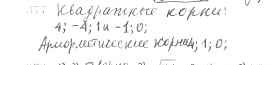 Квадратные корни:
4; -4; 1 и -1; 0;
Арифметические корни 4; 1; 0;